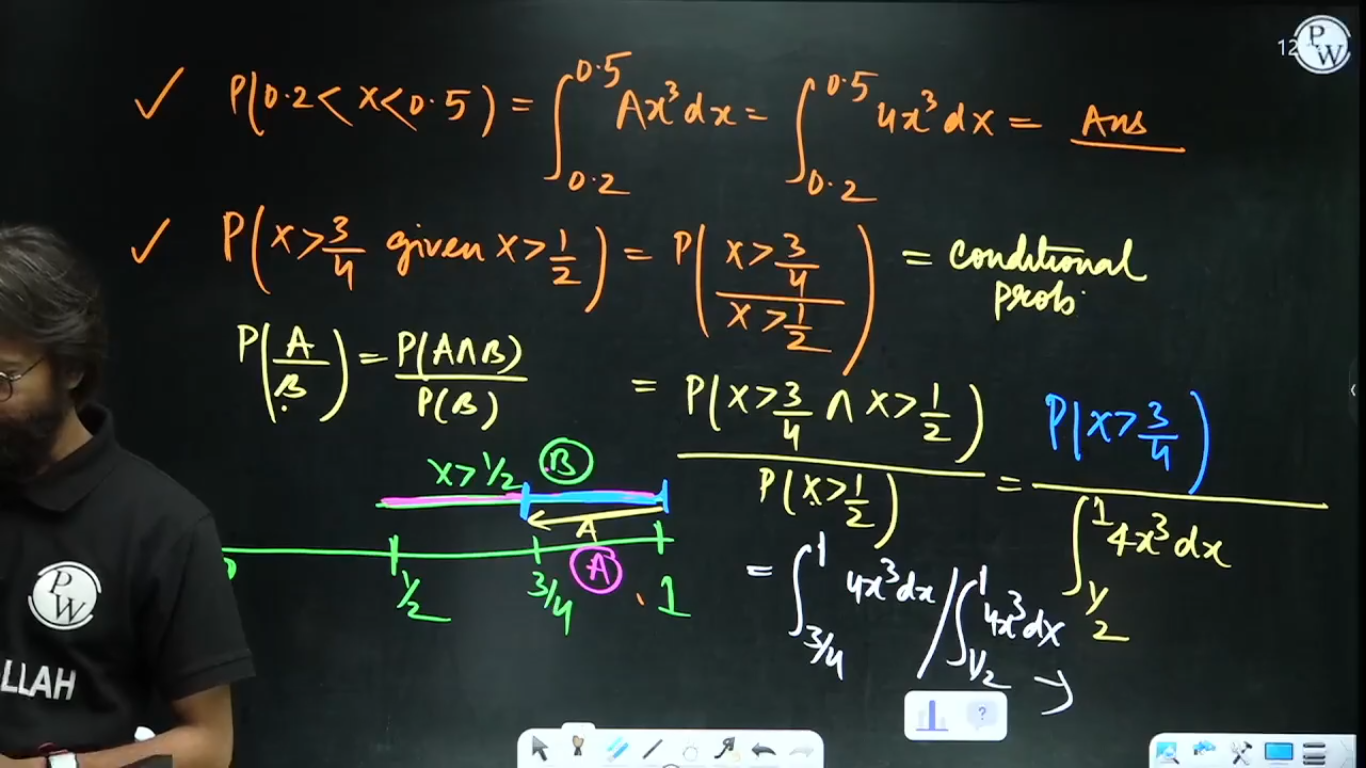 12
PW
✓ P(0.2 < x < 0.5) = ∫_{0.2}^{0.5} Ax³dx = ∫_{0.2}^{0.5} 4x³dx = Ans
✓ P(x > 3/4 given x > 1/2) = P((x > 3/4)/(x > 1/2)) = conditional
prob.
P(A/B) = P(A∩B)/P(B)
= P(x > 3/4 ∩ x > 1/2)/P(x > 1/2) = P(x > 3/4)/∫_{1/2}^{1} 4x³dx
x > 1/2 B
A
1/2 3/4 A 1
= ∫_{3/4}^{1} 4x³dx / ∫_{1/2}^{1} 4x³dx →
PW
LLAH
?